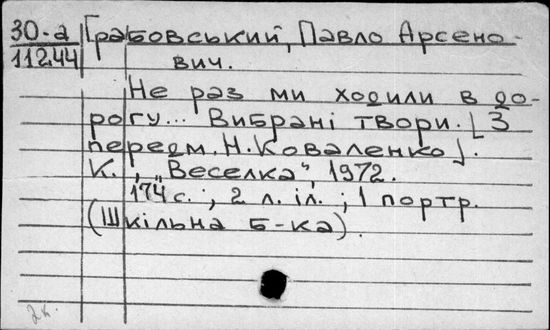 30-а Грабовський, Павло Арсено-
11244 вич.
Не раз ми ходили в до-
рогу... Вибрані твори. [З
передм. Н. Коваленко].
К., „Веселка", 1972.
174 с.; 2 л. іл.; 1 портр.
(Шкільна б-ка).
2к.